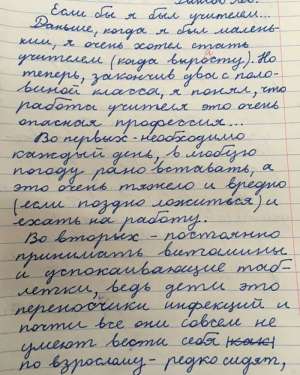 Если бы я был учителем...
Раньше, когда я был малень-
ким, я очень хотел стать
учителем (когда вырасту). Но
теперь, закончив два с поло-
виной класса, я понял, что
работа учителя это очень
опасная профессия...
Во первых - необходимо
каждый день, в любую
погоду рано вставать, а
это очень тяжело и вредно
(если поздно ложиться) и
ехать на работу.
Во вторых - постоянно
принимать витамины
и успокаивающие таб-
летки, ведь дети это
переносчики инфекций и
почти все они совсем не
умеют вести себя как
по взрослому - редко сидят,